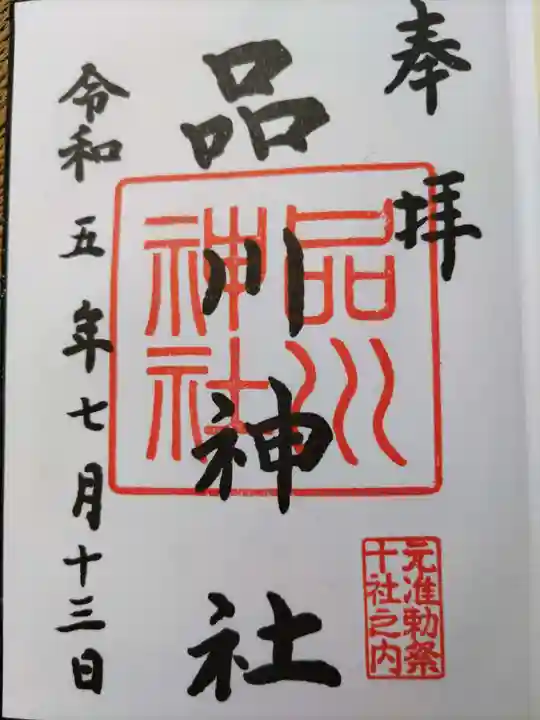 奉拝
品川神社
品川
神社
元准勅祭
十社之内
令和五年七月十三日